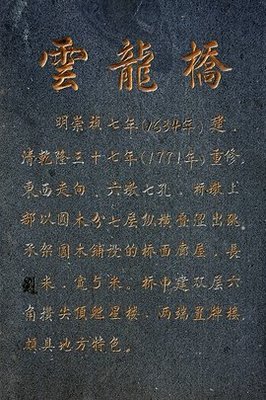 雲龍橋
明崇禎七年(1634年)建,
清乾隆三十七年(1771年)重修,
東西走向、六墩七孔,橋墩上
都以圓木分七層纵横叠涩出跳,
承架圓木铺設的桥面廊屋,長
米,宽5米。桥中建双层六
角攒尖頂魁星楼,两端置牌楼,
頗具地方特色。